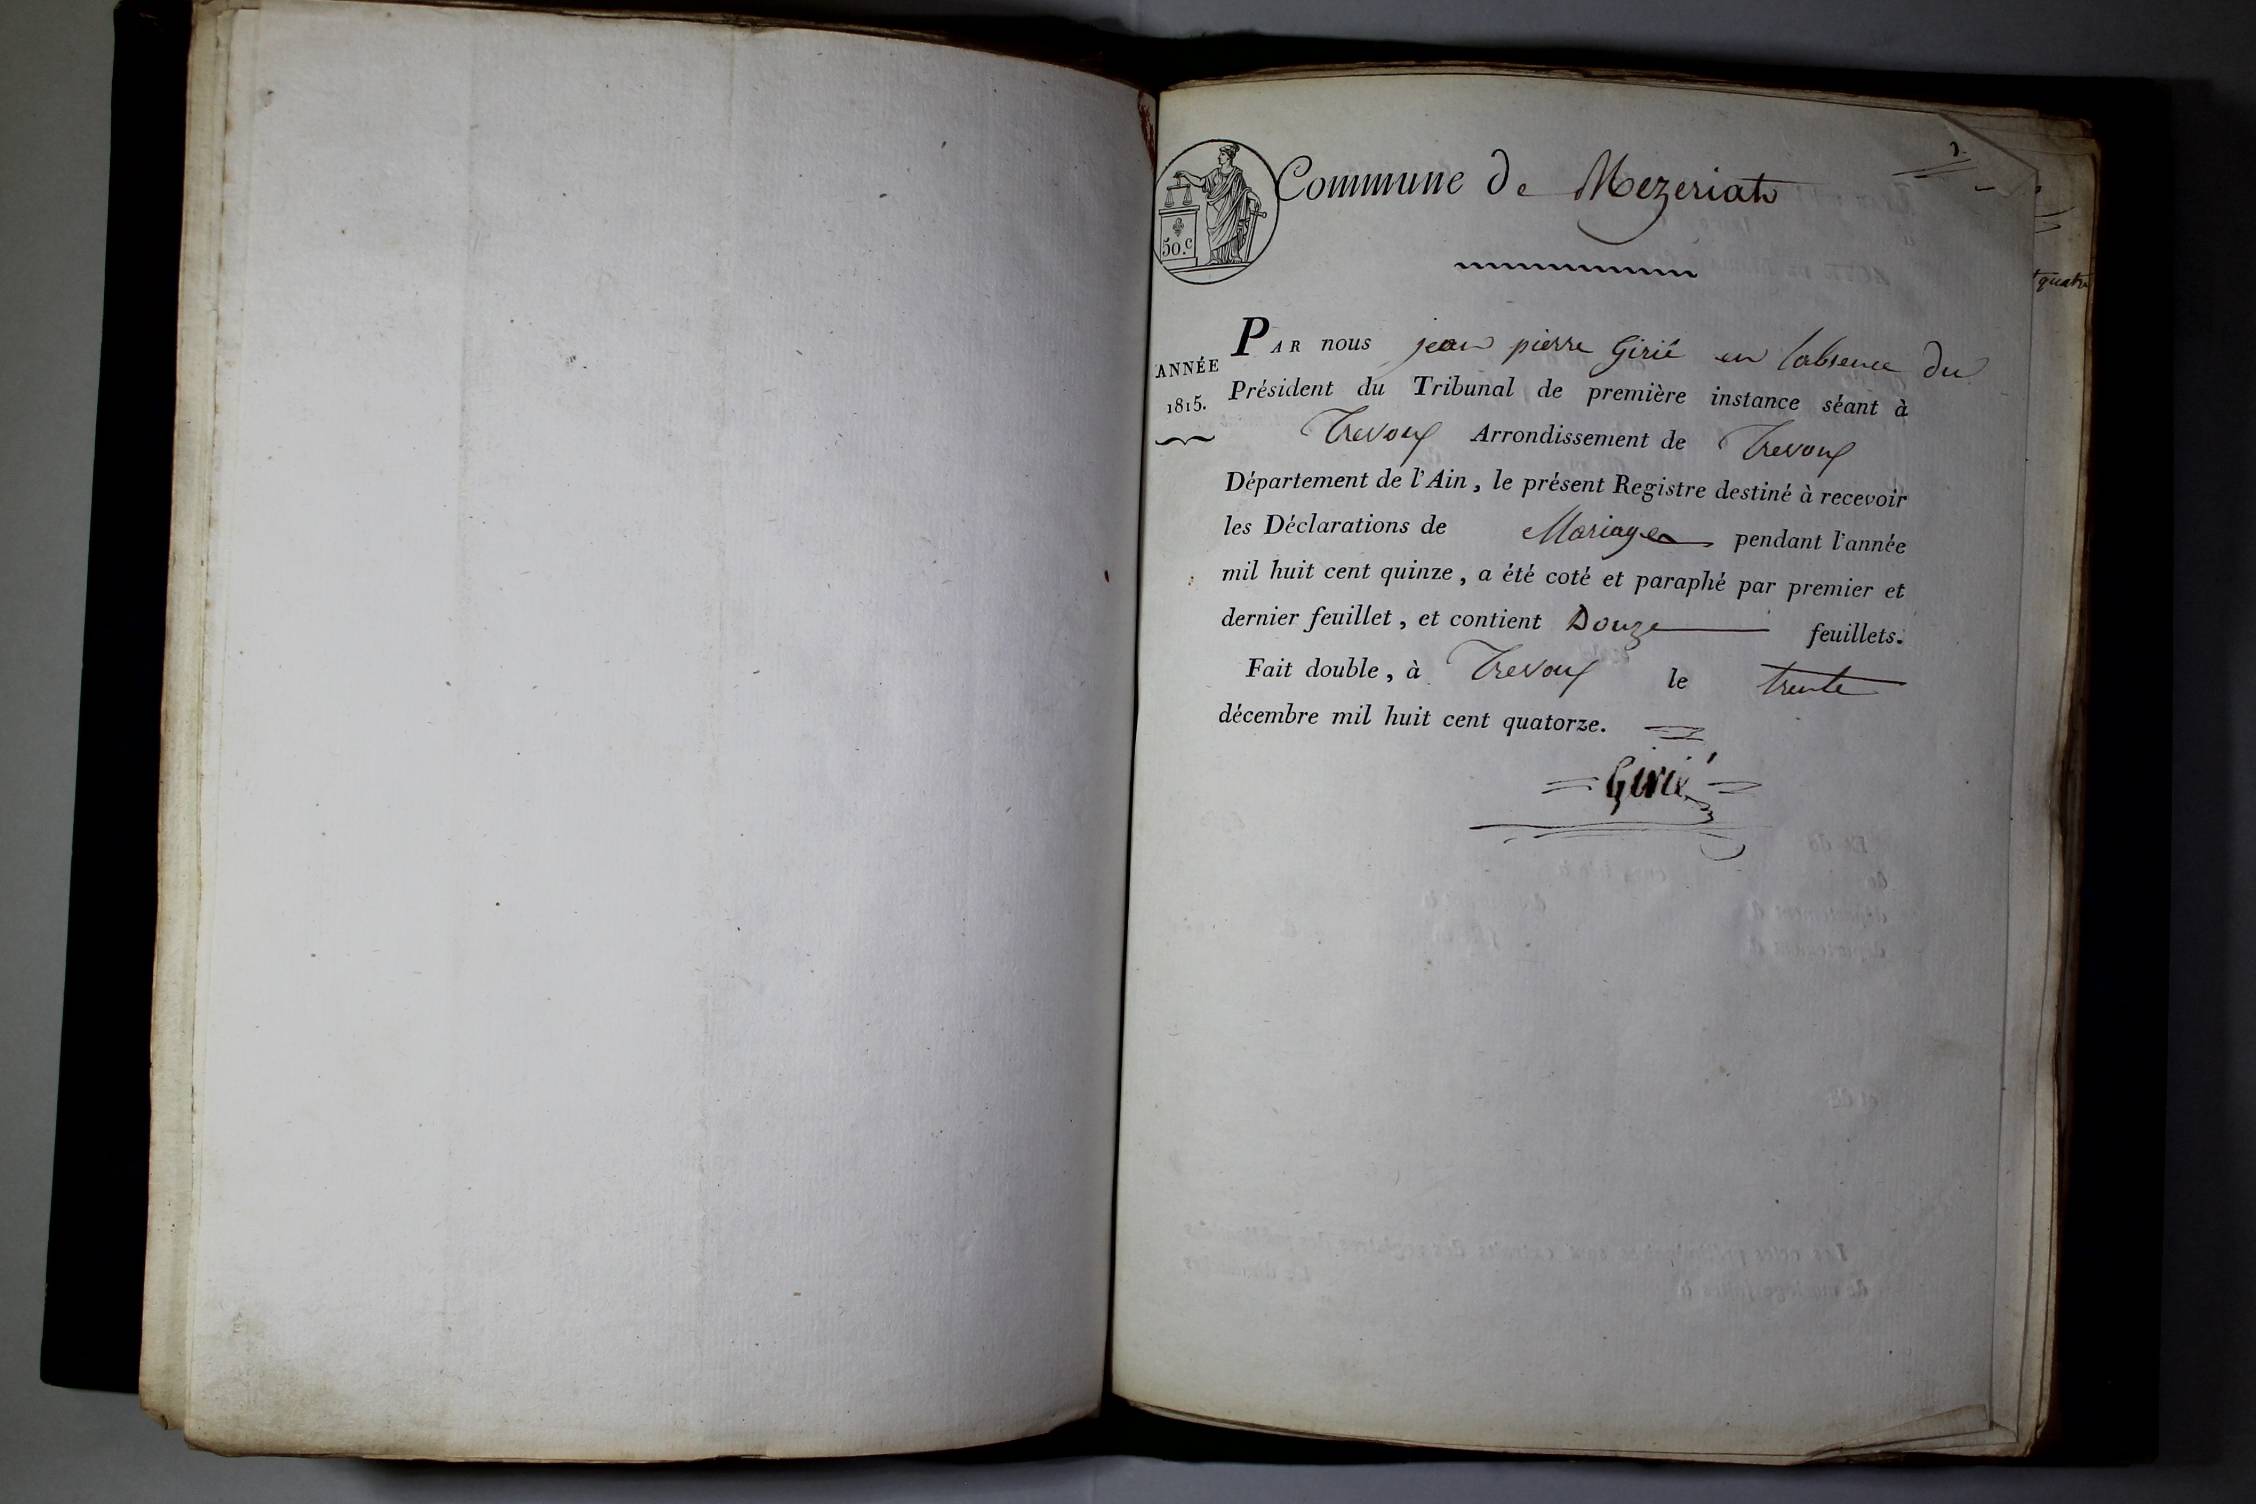 Commune de Mezeriat
50.c
PAR nous jean pierre Girié en labsence du
ANNÉE
1815.
Président du Tribunal de première instance séant à
Trevoux Arrondissement de Trevoux
Département de l'Ain, le présent Registre destiné à recevoir
les Déclarations de Mariages pendant l'année
mil huit cent quinze, a été coté et paraphé par premier et
dernier feuillet, et contient Douze feuillets.
Fait double, à Trevoux le trente
décembre mil huit cent quatorze.
Girié
quatre